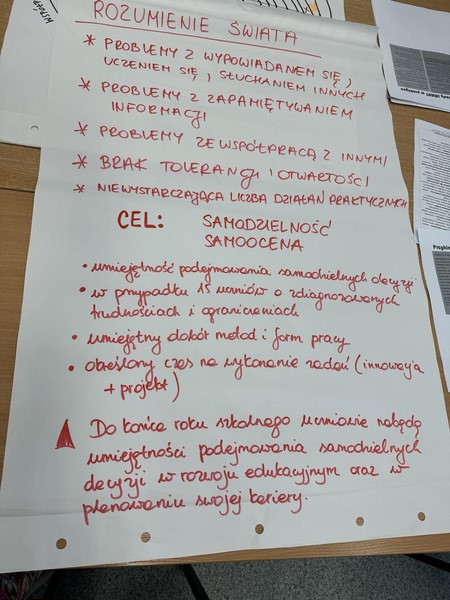 ROZUMIENIE ŚWIATA
* PROBLEMY Z WYPOWIADANIEM SIĘ,
UCZENIEM SIĘ, SŁUCHANIEM INNYCH
* PROBLEMY Z ZAPAMIĘTYWANIEM
INFORMACJI
* PROBLEMY ZE WSPÓŁPRACĄ Z INNYMI
* BRAK TOLERANCJI I OTWARTOŚCI
* NIEWYSTARCZAJĄCA LICZBA DZIAŁAŃ PRAKTYCZNYCH
CEL: SAMODZIELNOŚĆ
SAMOOCENA
• umiejętność podejmowania samodzielnych decyzji
• w przypadku 15 uczniów o zdiagnozowanych
trudnościach i ograniczeniach
• umiejętny dobór metod i form pracy
• określony czas na wykonanie zadań (innowacja
+ projekt)
Do końca roku szkolnego uczniowie nabędą
umiejętności podejmowania samodzielnych
decyzji w rozwoju edukacyjnym oraz w
planowaniu swojej kariery.